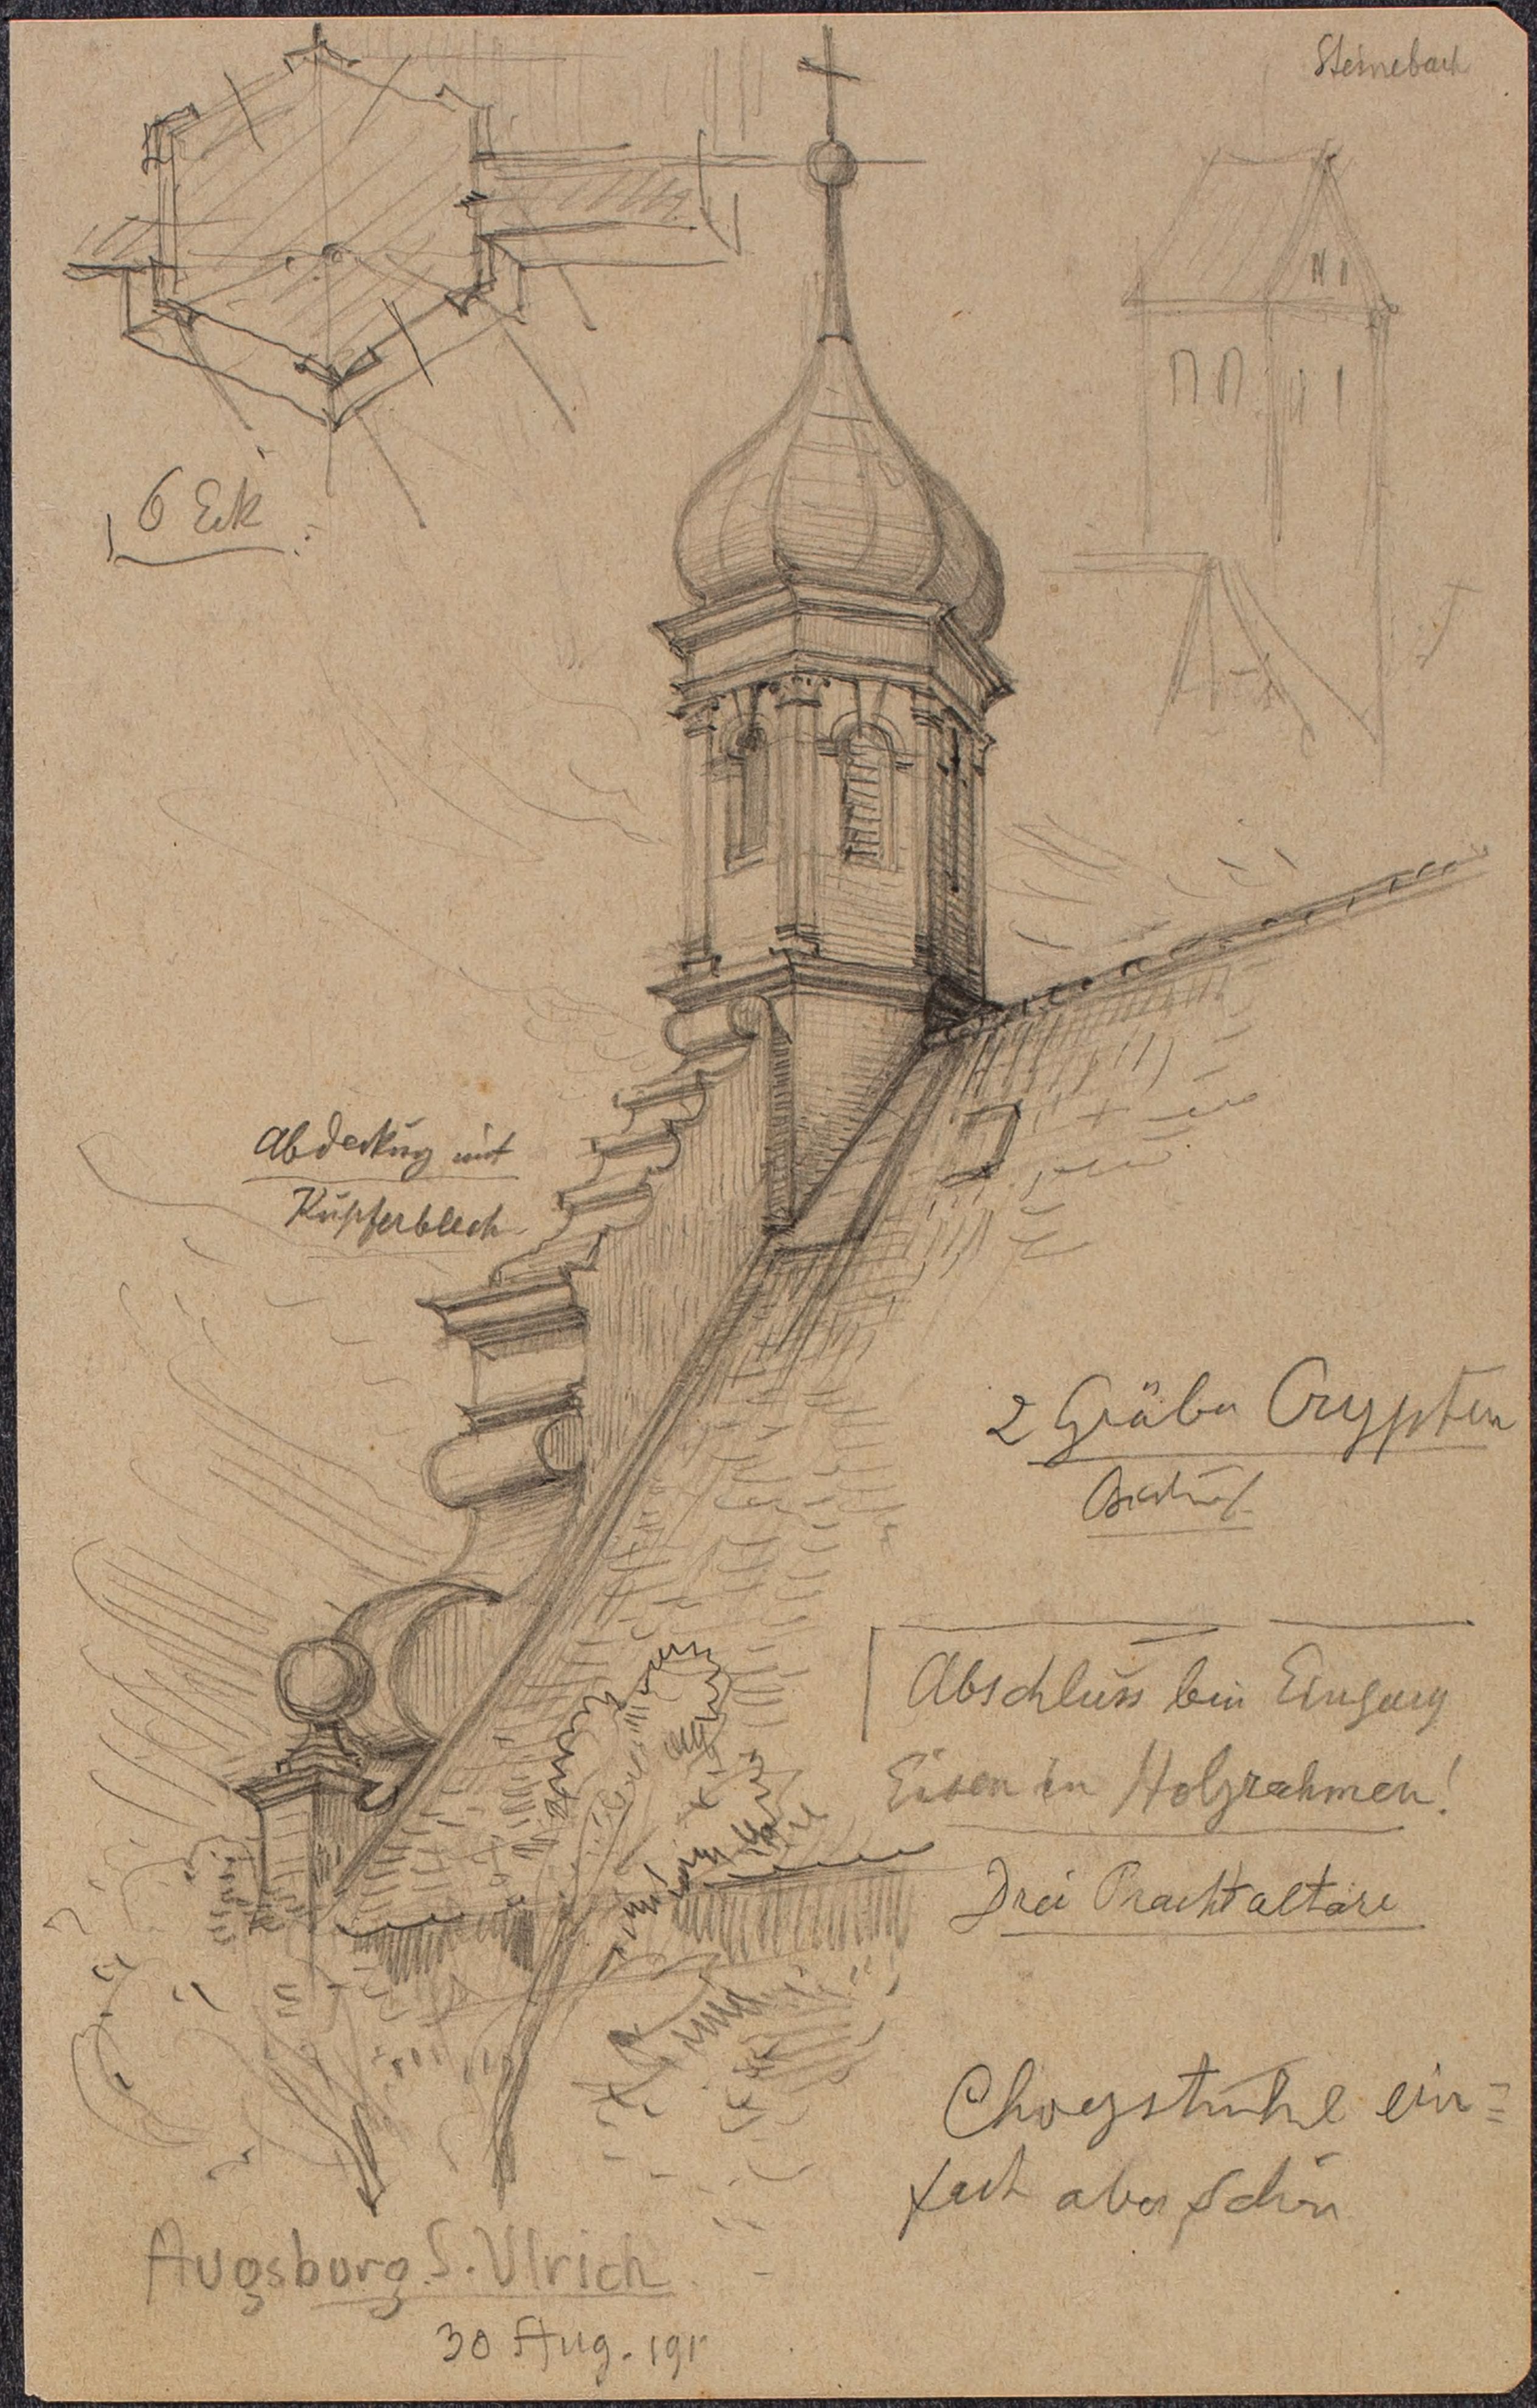 Steinebach
6 Eck
Abdeckung mit
Kupferblech
2 Gräber Crypten
Abschluss beim Eingang
Eisen in Holzrahmen!
Drei Prachtaltäre
Chorgstühle ein=
fach aber schön
Augsburg S. Ulrich
30 Aug. 191